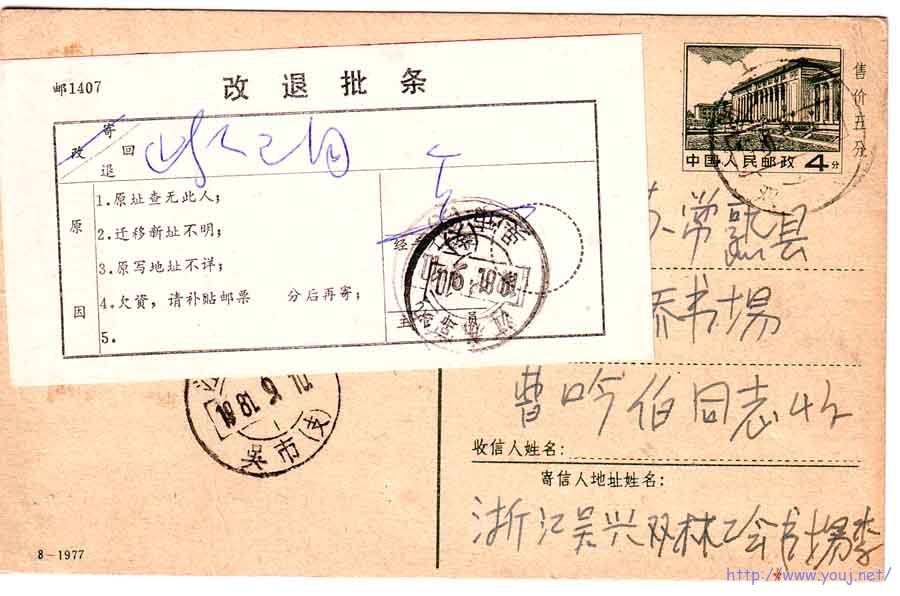 邮1407
改退批条
改
寄
退
回
原因
1.原址查无此人；
2.迁移新址不明；
3.原写地址不详；
4.欠资，请补贴邮票 分后再寄；
5.
经手
主
中国人民邮政 4分
售价五分
常熟县
书場
曹吟伯同志收
收信人姓名：
寄信人地址姓名：
浙江吴兴双林工会书場李
吴市(支)
8-1977
http://www.youj.net/